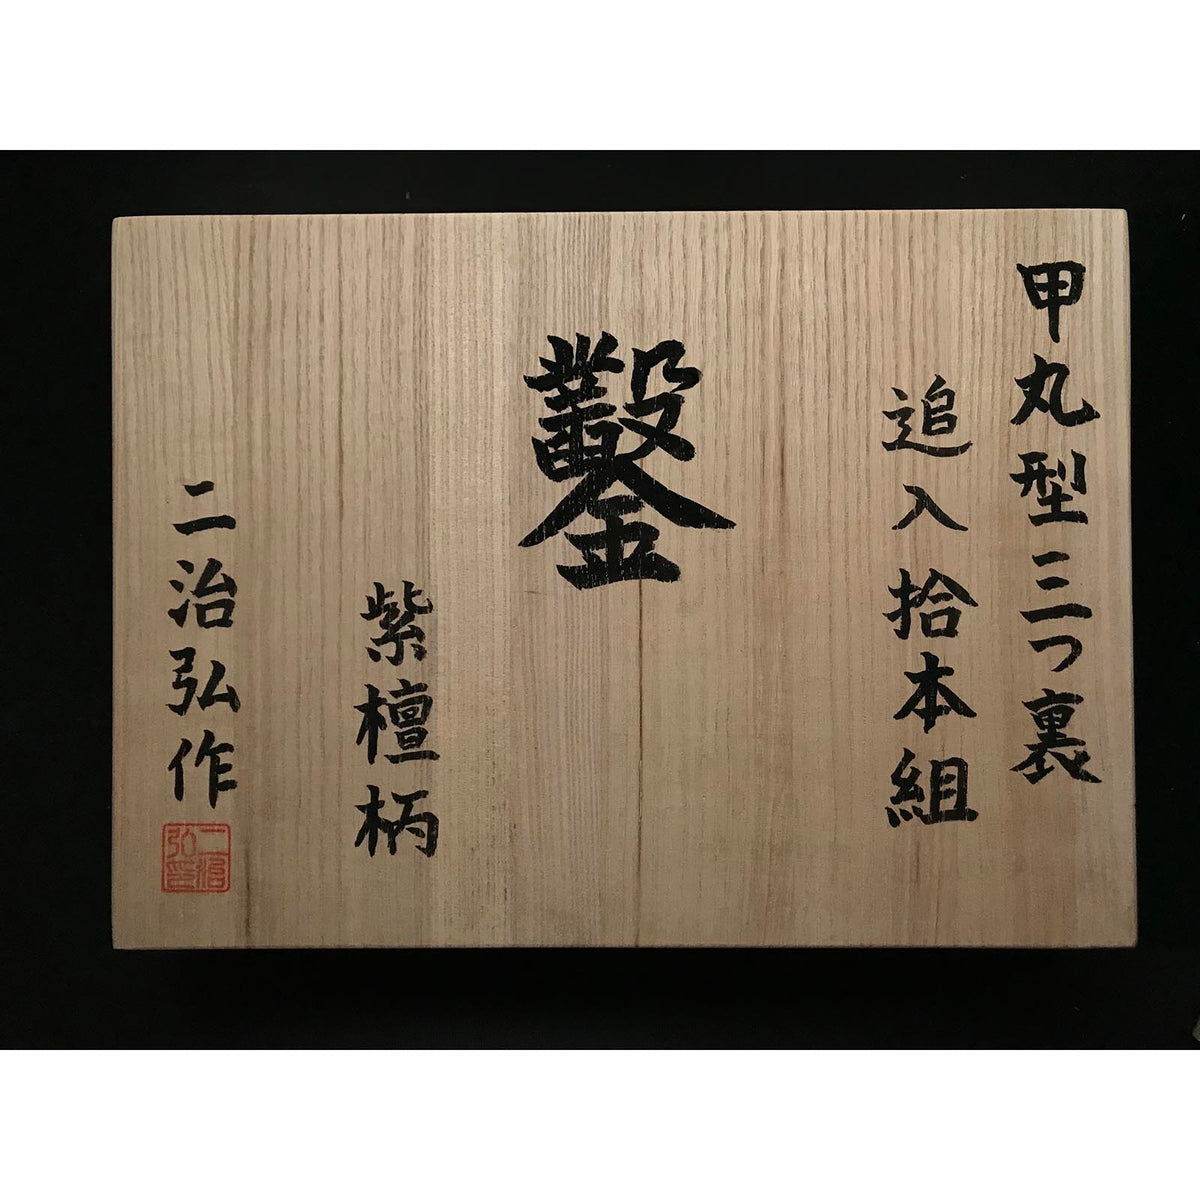 甲丸型三つ裏
追入拾本組
鑿
紫檀柄
二治弘作
二治弘印